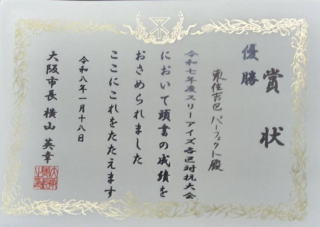 賞状
優勝
東住吉区 パーフェクト殿
令和七年度スリーアイズ各区対抗大会
において頭書の成績を
おさめられました
ここにこれをたたえます
令和八年一月十八日
大阪市長 横山英幸